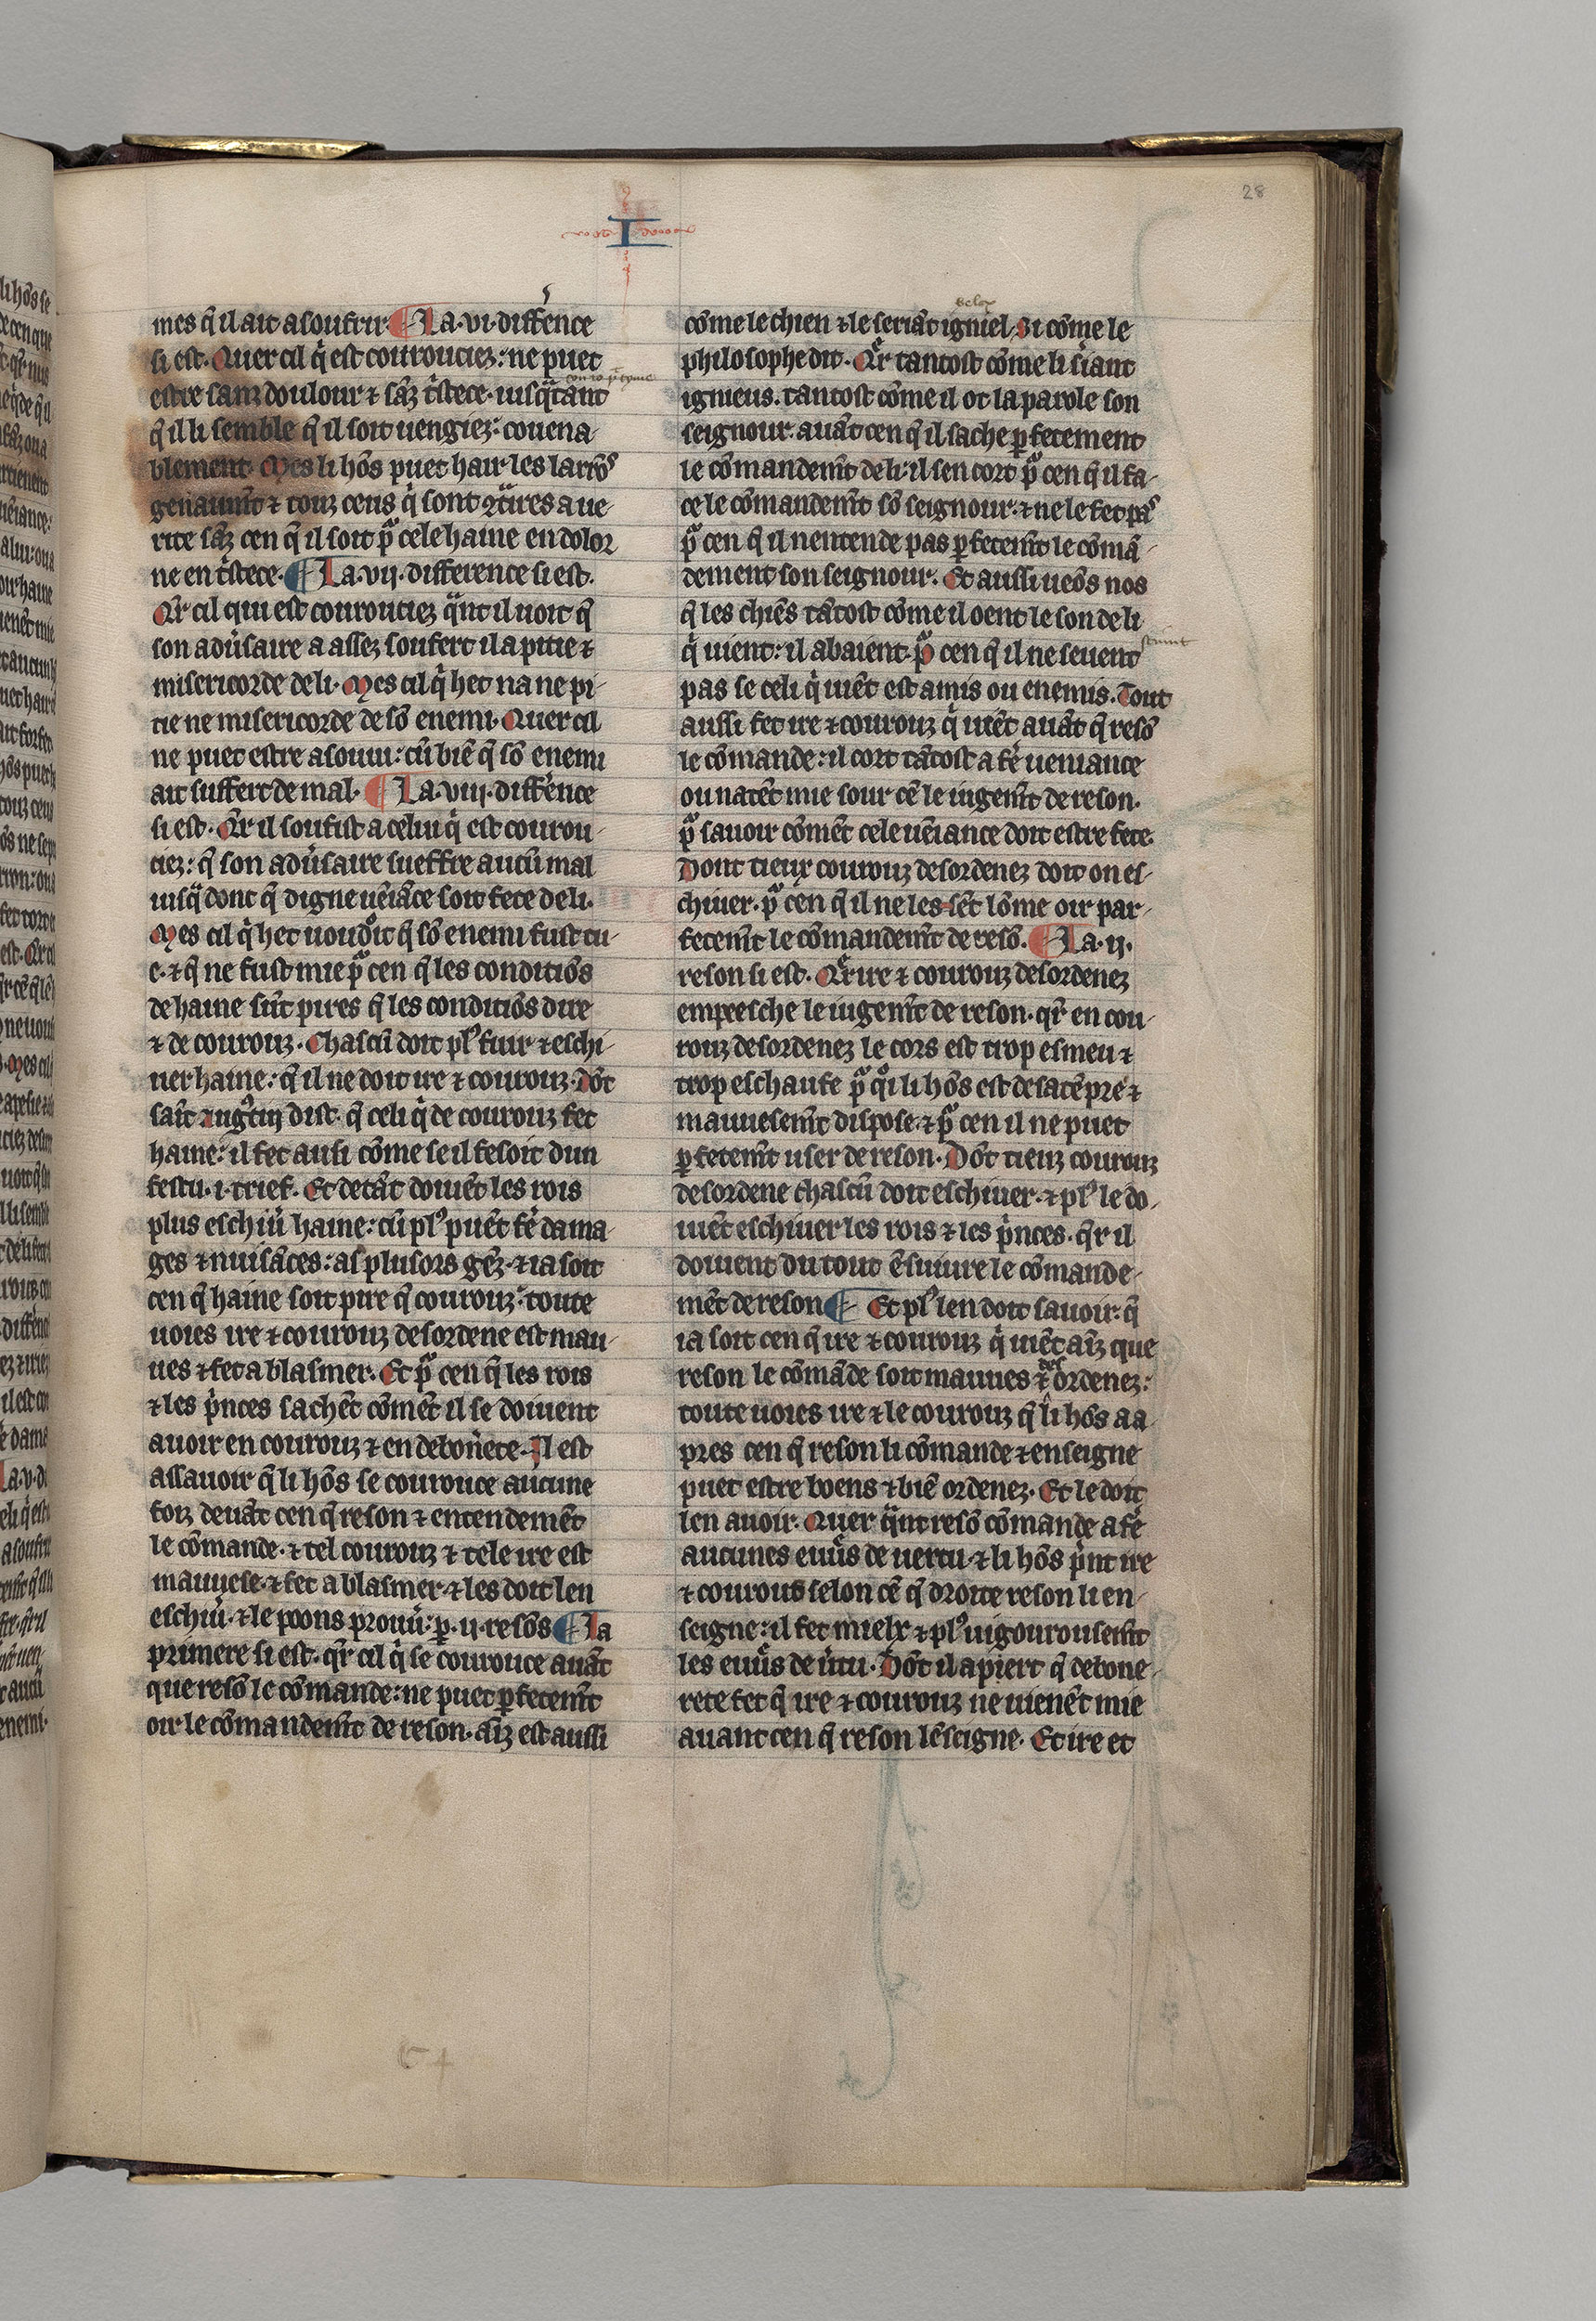 28
I
mes q̃ il ait a soufrir. ¶ La .vi. diffẽence
si est. Quer cil q̇ est courouciez: ne puet
estre sanz doulour ⁊ sãz tˢtece. iusq̃ tant
q̃ il li semble q̃ il soit uengiez: couena-
blement. Mes li hõs puet hair les larrõs
genaumt̃ ⁊ touz ceus q̇ sont ꝯtͣires a ue-
rite sãz cen q̃ il soit pͦ cele haine en dolor
ne en tˢtece. ¶ La .vij. difference si est.
Qr̃ cil qui est courouciez qͣnt il uoit q̃
son adũsaire a assez soufert il a pitie ⁊
misericorde de li. Mes cil q̇ het na ne pi-
tie ne misericorde de sõ enemi. Quer cil
ne puet estre asouui: cũ biẽ q̃ sõ enemi
ait suffert de mal. ¶ La .viij. diffẽence
si est. Qr̃ il soufist a celui q̇ est courou-
ciez: q̃ son adũsaire sueffre aucũ mal
iusq̃ dont q̃ digne uẽiãce soit fete de li.
Mes cil q̇ het uoudͦit q̃ sõ enemi fust tu-
e. ⁊ q̃ ne fust mie pͦ cen q̃ les conditiõs
de haine sũt pires q̃ les conditiõs dire
⁊ de courouz. Chascũ doit plꝰ fuir ⁊ eschi-
uer haine: q̃ il ne doit ire ⁊ courouz. Dõt
sait̃ augͦtin dist. q̃ celi q̇ de courouz fet
haine: il fet ausi cõme se il fesoit dun
festu .i. tref. Et de tãt doiuẽt les rois
plus eschiũ haine: cũ plꝰ puẽt fẽ dama-
ges ⁊ nuisãces: as plusors gẽz. ⁊ ia soit
cen q̃ haine soit pire q̃ courouz: toute
uoies ire ⁊ courouz desordene est mau-
ues ⁊ fet a blasmer. Et pͦ cen q̃ les rois
⁊ les pˢnces sachẽt cõmẽt il se doiuent
auoir en courouz ⁊ en debonẽete. Il est
assauoir q̃ li hõs se courouce aucune
foiz deuãt cen q̃ reson ⁊ entendemẽt
le cõmande. ⁊ tel courouz ⁊ tele ire est
mauuese. ⁊ fet a blasmer. ⁊ les doit len
eschiũ. ⁊ le poons prouũ: ꝑ .ij. resõs ¶ La
primere si est. qr̃ cil q̇ se courouce auãt
que resõ le cõmande: ne puet ꝑfetemt̃
oir le cõmandemt̃ de reson. aĩz est aussi
cõme le chien ⁊ le seriãt igniel. Si cõme le
philosophe dit. Qr̃ tantost cõme li siant
ignieus. tantost cõme il ot la parole son
seignour. auãt cen q̃ il sache ꝑfetement
le cõmandemt̃ de li: il sen cort pͦ cen q̃ il fa-
ce le cõmandemt̃ sõ seignour: ⁊ ne le fet pas
pͦ cen q̃ il nentende pas ꝑfetemt̃ le cõmã-
dement son seignour. Et aussi ueõs nos
q̃ les chiẽs tãtost cõme il oent le son de li
q̇ uient: il abaient. pͦ cen q̃ il ne seuent
pas se celi q̇ uiẽt est amis ou enemis. Tout
aussi fet ire ⁊ courouz q̇ uiẽt auãt q̃ resõ
le cõmande: il cort tãtost a fẽ ueniance
ou natẽt mie sour cẽ le iugemt̃ de reson.
pͦ sauoir cõmẽt cele uẽiance doit estre fete.
Dont tieux courouz desordenez doit on es-
chiuer. pͦ cen q̃ il ne les sẽt lõme oir par-
fetemt̃ le cõmandemt̃ de resõ. ¶ La .ij.
reson si est. Qr̃ ire ⁊ courouz desordenez
empeesche le iugemt̃ de reson. qr̃ en cou-
rouz desordenez le cors est trop esmeu ⁊
trop eschaufe pͦ qͦi li hõs est desatẽpre ⁊
mauuesemt̃ dispose. ⁊ pͦ cen il ne puet
ꝑfetemt̃ user de reson. Dõt tieuz courouz
desordene chascũ doit eschiuer. ⁊ plꝰ le do-
iuẽt eschiuer les rois ⁊ les pˢnces. qr̃ il
doiuent du tout ẽsuiure le cõmande-
mẽt de reson ¶ Et plꝰ len doit sauoir: q̃
ia soit cen q̃ ire ⁊ courouz q̇ uiẽt aĩz que
reson le cõmãde soit mauues ⁊ desordenez:
toute uoies ire ⁊ le courouz q̃ li hõs a a-
pres cen q̃ reson li cõmande ⁊ enseigne
puet estre boens ⁊ biẽ ordenez. Et le doit
len auoir. Quer qͣnt resõ cõmande a fẽ
aucunes euũs de uertu. ⁊ li hõs pˢnt ire
⁊ courous selon cẽ q̃ droite reson li en-
seigne: il fet mielx ⁊ plꝰ uigourousemt̃
les euũs de ũtu. Dõt il apiert q̃ debone-
rete fet q̃ ire ⁊ courouz ne uienẽt mie
auant cen q̃ reson lẽseigne. Et ire et